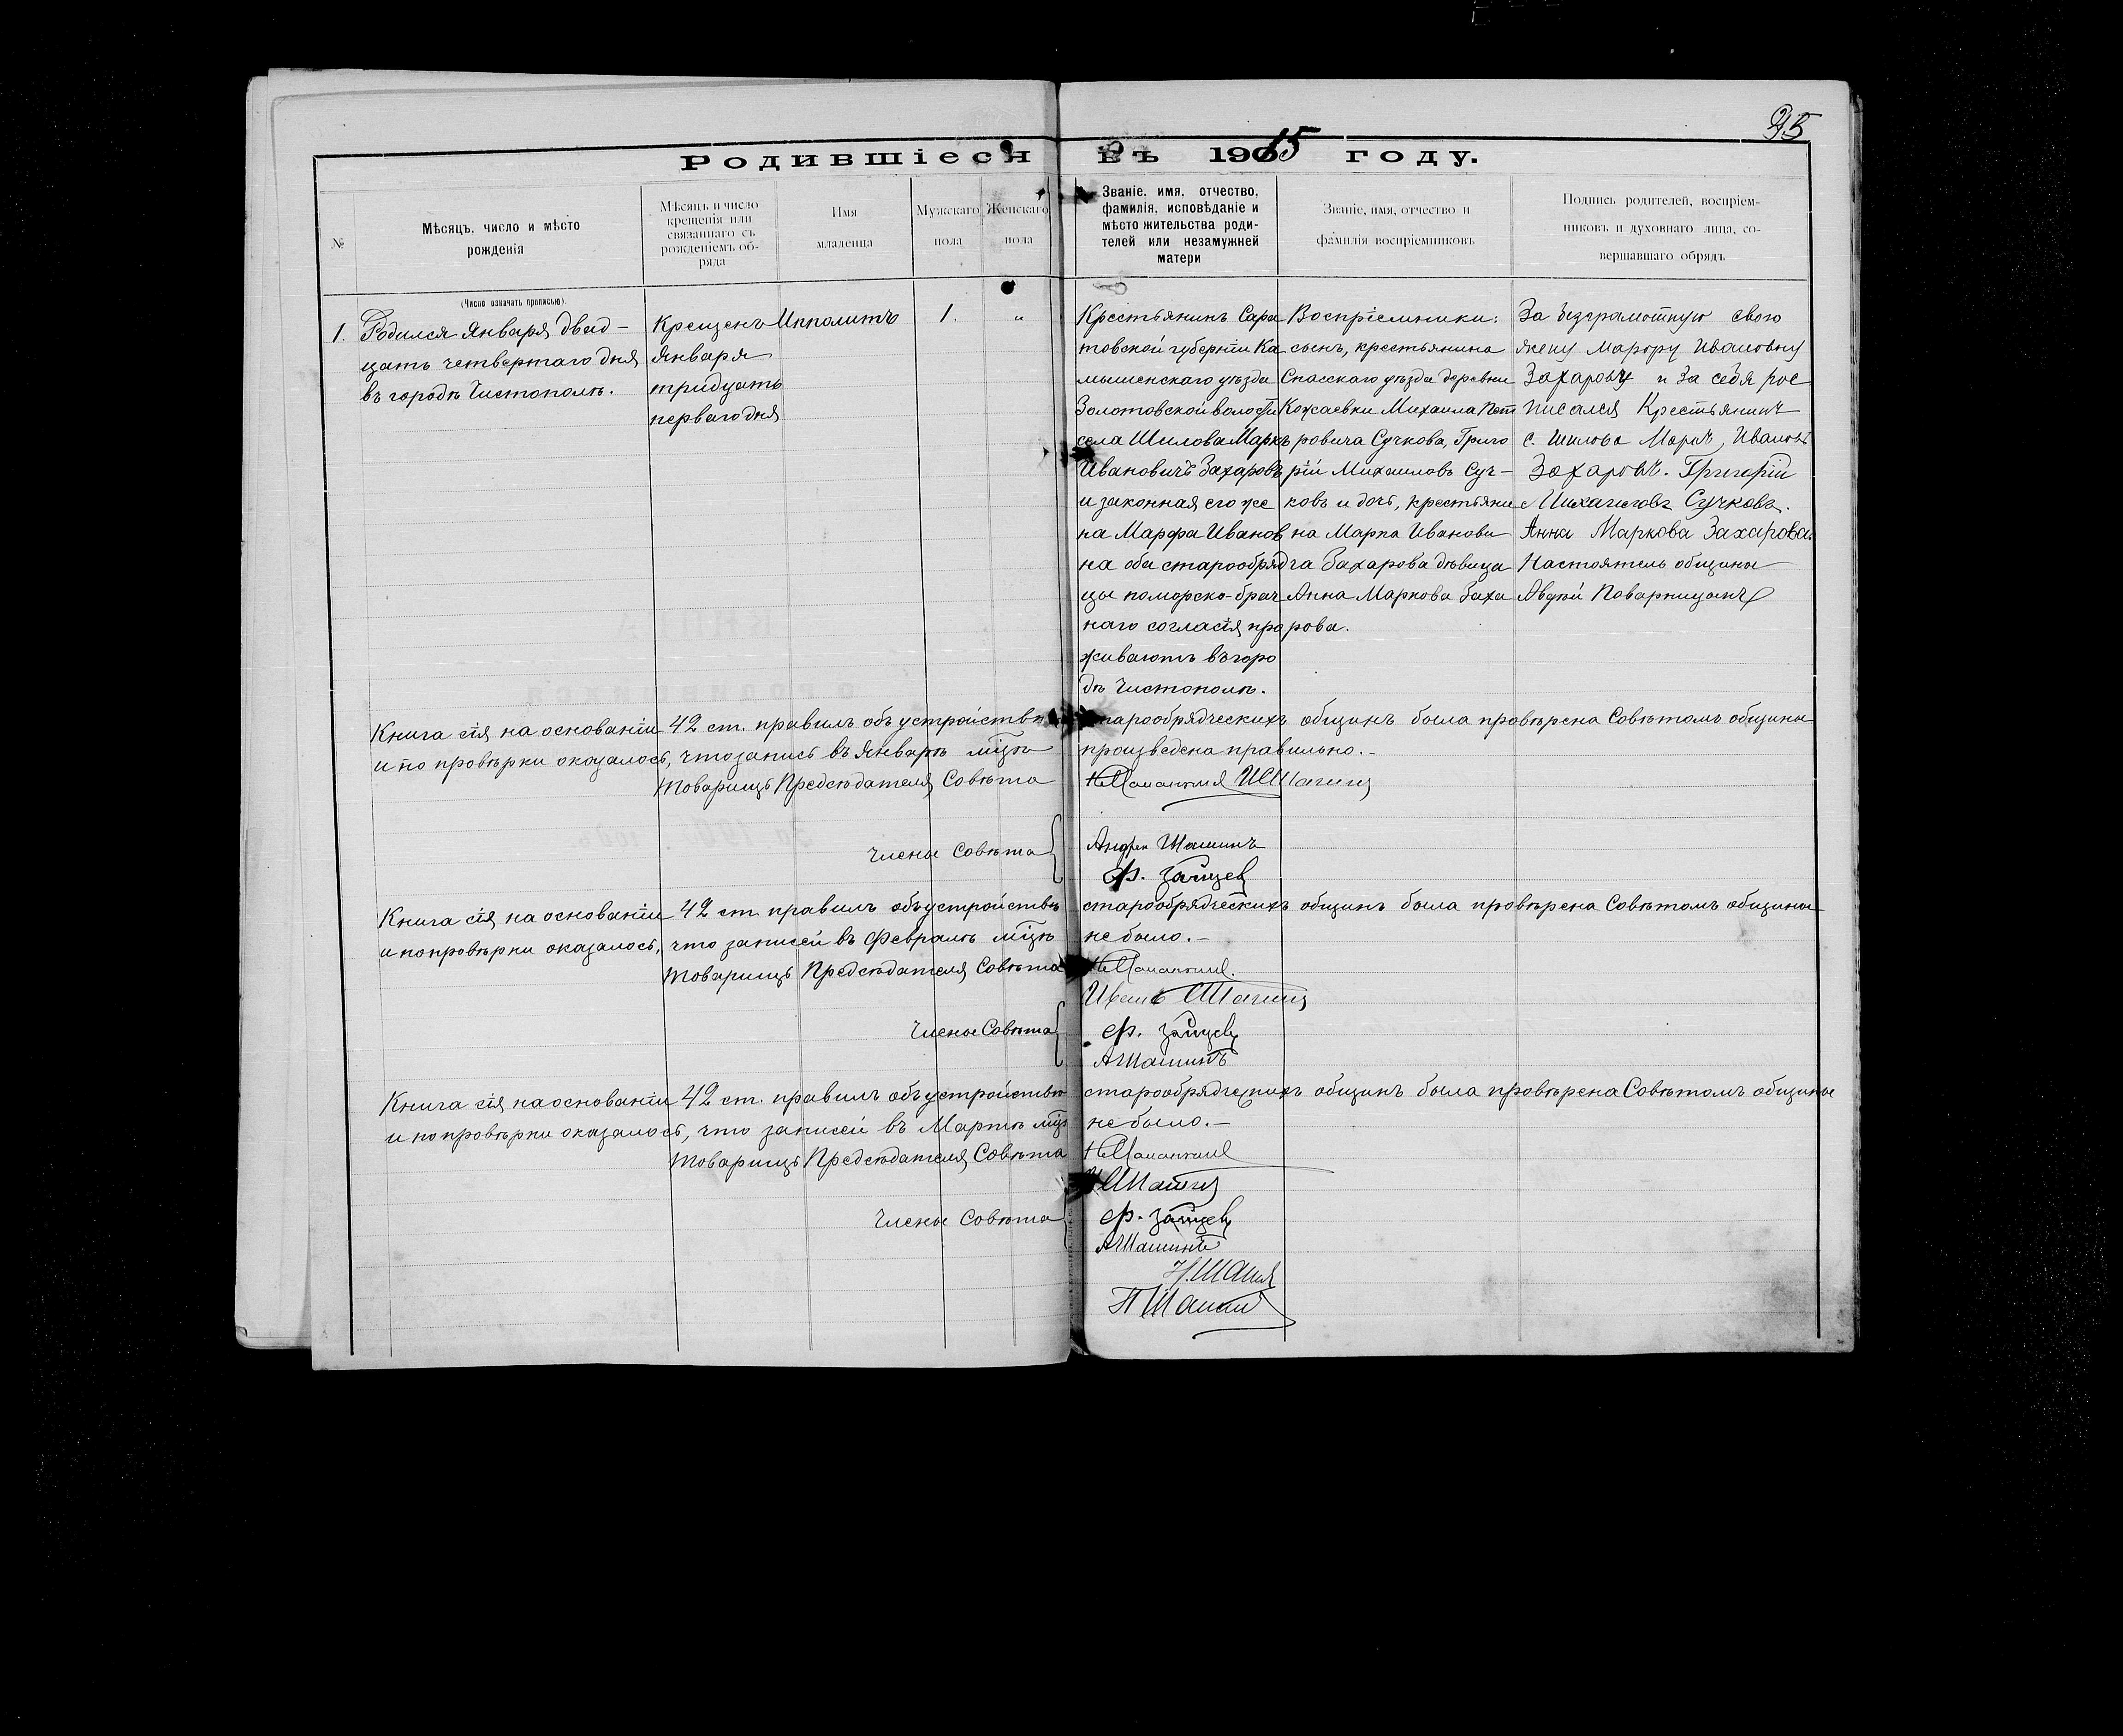 95
Родившіеся въ 1915 году.
№
Мѣсяцъ, число и мѣсто
рожденія
Мѣсяцъ и число
крещенія или
связаннаго съ
рожденіемъ об-
ряда
Имя
младенца
Мужскаго
пола
Женскаго
пола
Званіе, имя, отчество,
фамилія, исповѣданіе и
мѣсто жительства роди-
телей или незамужней
матери
Званіе, имя, отчество и
фамилія воспріемниковъ
Подпись родителей, воспріем-
никовъ и духовнаго лица, со-
вершавшаго обрядъ
(Число означать прописью).
1.
Родился Января двад-
цать четвертаго дня
въ городѣ Чистополѣ.
Крещенъ
Января
тридцать
перваго дня
Ипполитъ
1.
"
Крестьянинъ Сара
товской губерніи Ка
мышенскаго уѣзда
Золотовской волости
села Шилова Маркъ
Ивановичъ Захаровъ
и законная его же
на Марфа Иванов
на оба старообряд
цы поморско-брач
наго согласія про
живаютъ въ горо
дѣ Чистополѣ.
Воспріемники:
сынъ, крестьянина
Спасскаго уѣзда деревни
Кожаевки Михаила Пет
ровича Сучкова, Григо
рій Михаиловъ Суч-
ковъ и дочь, крестьяни
на Марка Иванови
ча Захарова дѣвица
Анна Маркова Заха
рова.
За безграмотную свою
жену Марфу Ивановну
Захарову и за себя рос
писался Крестьянинъ
с. Шилова Маркъ Ивановъ
Захаровъ. Григорій
Михаиловъ Сучковъ.
Анна Маркова Захарова
Настоятель общины
Авдѣй Поварницынъ
Книга сія на основаніи 42 ст. правилъ объ устройствѣ старообрядческихъ общинъ была провѣрена Совѣтомъ общины
и по провѣрки оказалось, что запись въ Январѣ мѣцѣ произведена правильно.-
Товарищъ Предсѣдателя Совѣта
Члены Совѣта
Ф. Зайцев
Книга сія на основаніи 42 ст. правилъ объ устройствѣ старообрядческихъ общинъ была провѣрена Совѣтомъ общины
и по провѣрки оказалось, что записей въ Февралѣ мѣцѣ не было.-
Товарищъ Предсѣдателя Совѣта
Члены Совѣта
Ф. Зайцев
Книга сія на основаніи 42 ст. правилъ объ устройствѣ старообрядческихъ общинъ была провѣрена Совѣтомъ общины
и по провѣрки оказалось, что записей въ Мартѣ мѣцѣ не было.-
Товарищъ Предсѣдателя Совѣта
Члены Совѣта
Ф. Зайцев